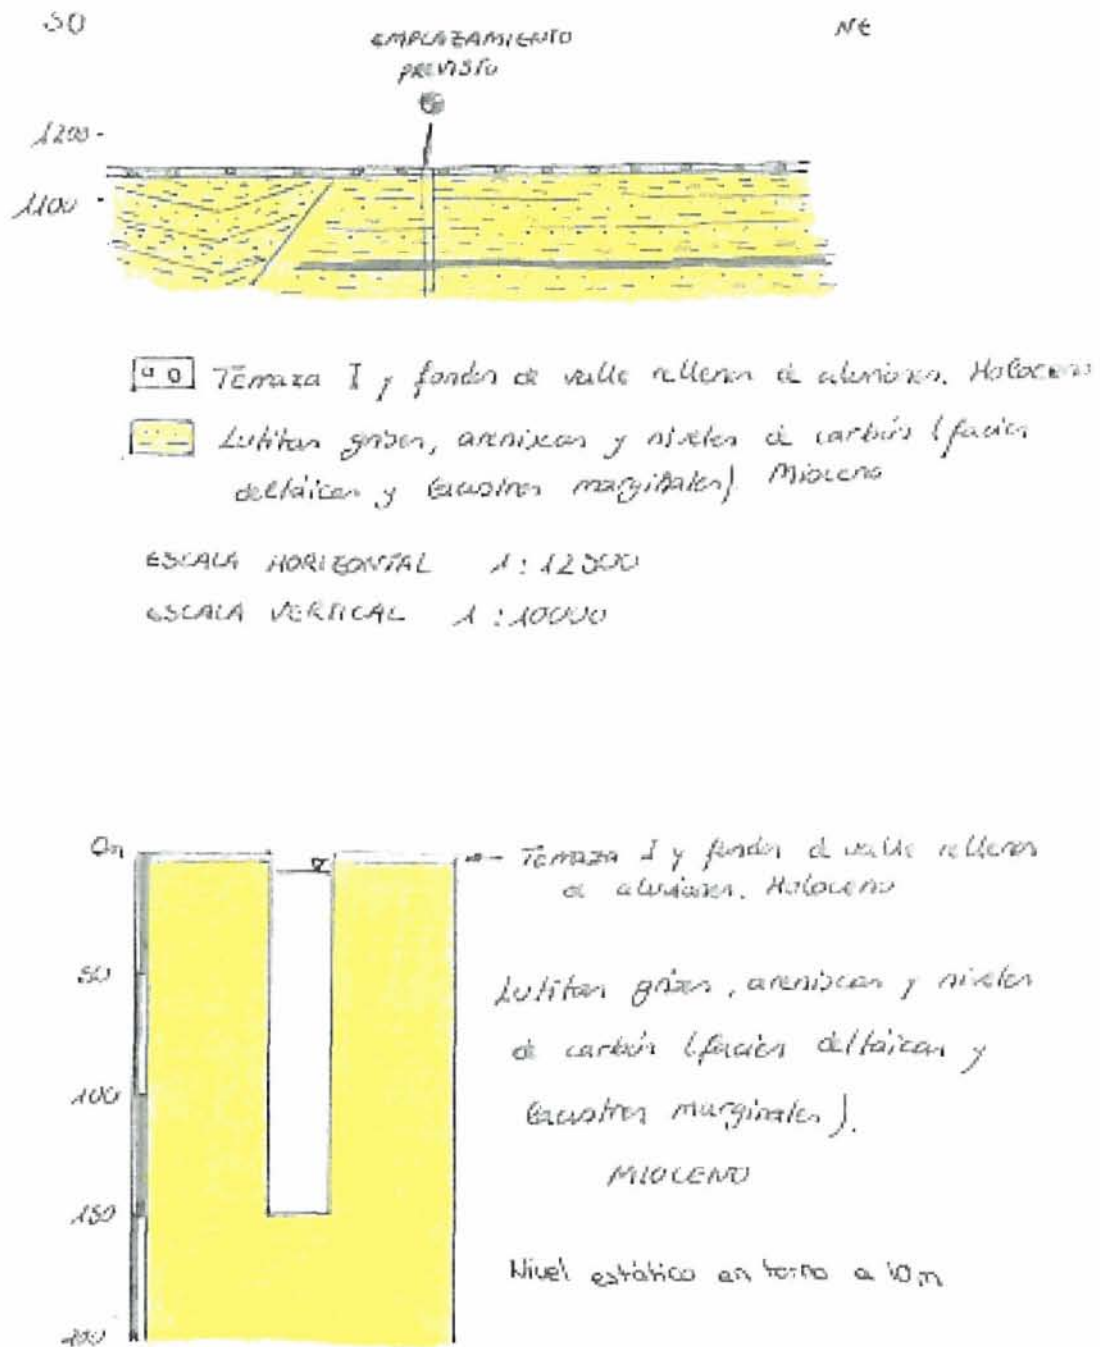 SO
NE
EMPLAZAMIENTO
PREVISTO
1200
1100
Terraza I y fondos de valle rellenos de aluviones. Holoceno
Lutitas grises, areniscas y niveles de carbón (facies
deltáicas y lacustres marginales) Mioceno
ESCALA HORIZONTAL 1:12500
ESCALA VERTICAL 1:10000
0m
Terraza I y fondos de valle rellenos
de aluviones. Holoceno
50
Lutitas grises, areniscas y niveles
de carbón (facies deltáicas y
100
lacustres marginales).
MIOCENO
150
Nivel estático en torno a 10m
200